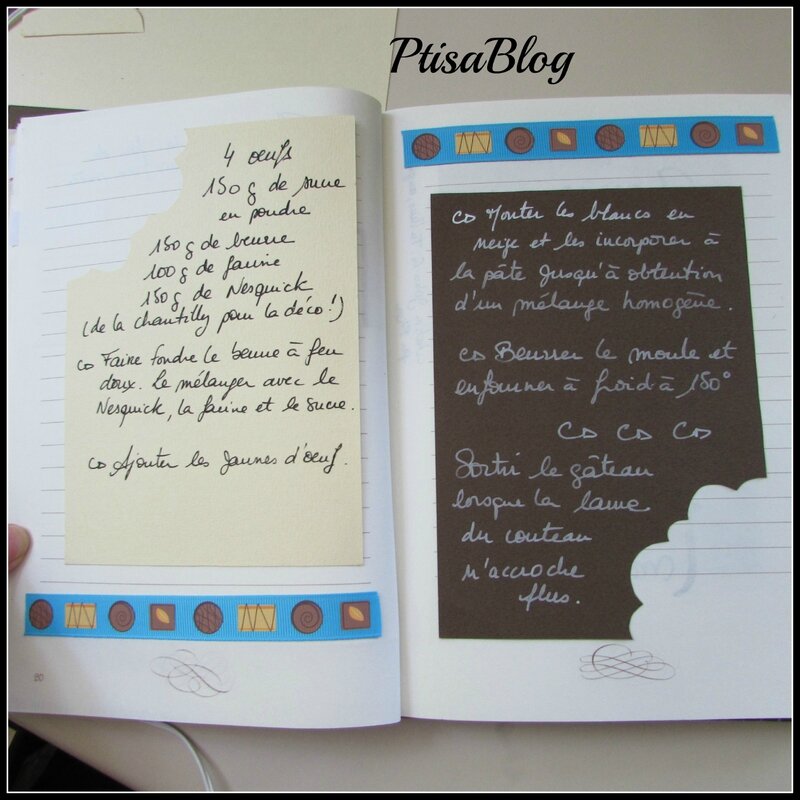 PtisaBlog
4 œufs
150 g de sucre
en poudre
150 g de beurre
100 g de farine
150 g de Nesquick
(de la chantilly pour la déco !)
Faire fondre le beurre à feu
doux. Le mélanger avec le
Nesquick, la farine et le sucre.
Ajouter les jaunes d'oeuf.
80
Monter les blancs en
neige et les incorporer à
la pâte jusqu'à obtention
d'un mélange homogène.
Beurrer le moule et
enfourner à froid à 150°
Sortir le gâteau
lorsque la lame
du couteau
n'accroche
plus.